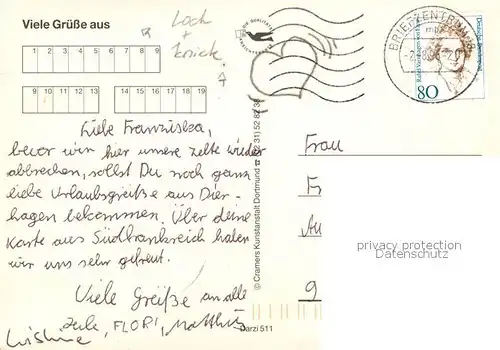 Viele Grüße aus
Loch
+
knick
1 2 3 4 5 6 7 8 9 10 11 12 13
14 15 16 17 18 19
Liebe Franziska,
bevor wir hier unsere Zelte wieder
abbrechen, sollst Du noch ganz
liebe Urlaubsgrüße aus Dier-
hagen bekommen. Über deine
Karte aus Südfrankreich haben
wir uns sehr gefreut.
Viele Grüße an alle
FLORI, Matthias
Darzi 511
© Cramers Kunstanstalt Dortmund ☎ (02 31) 52 82 38
BRIEFZENTRUM
80
Frau
Fr
Au
9
privacy protection
AnsichtskartenVersand